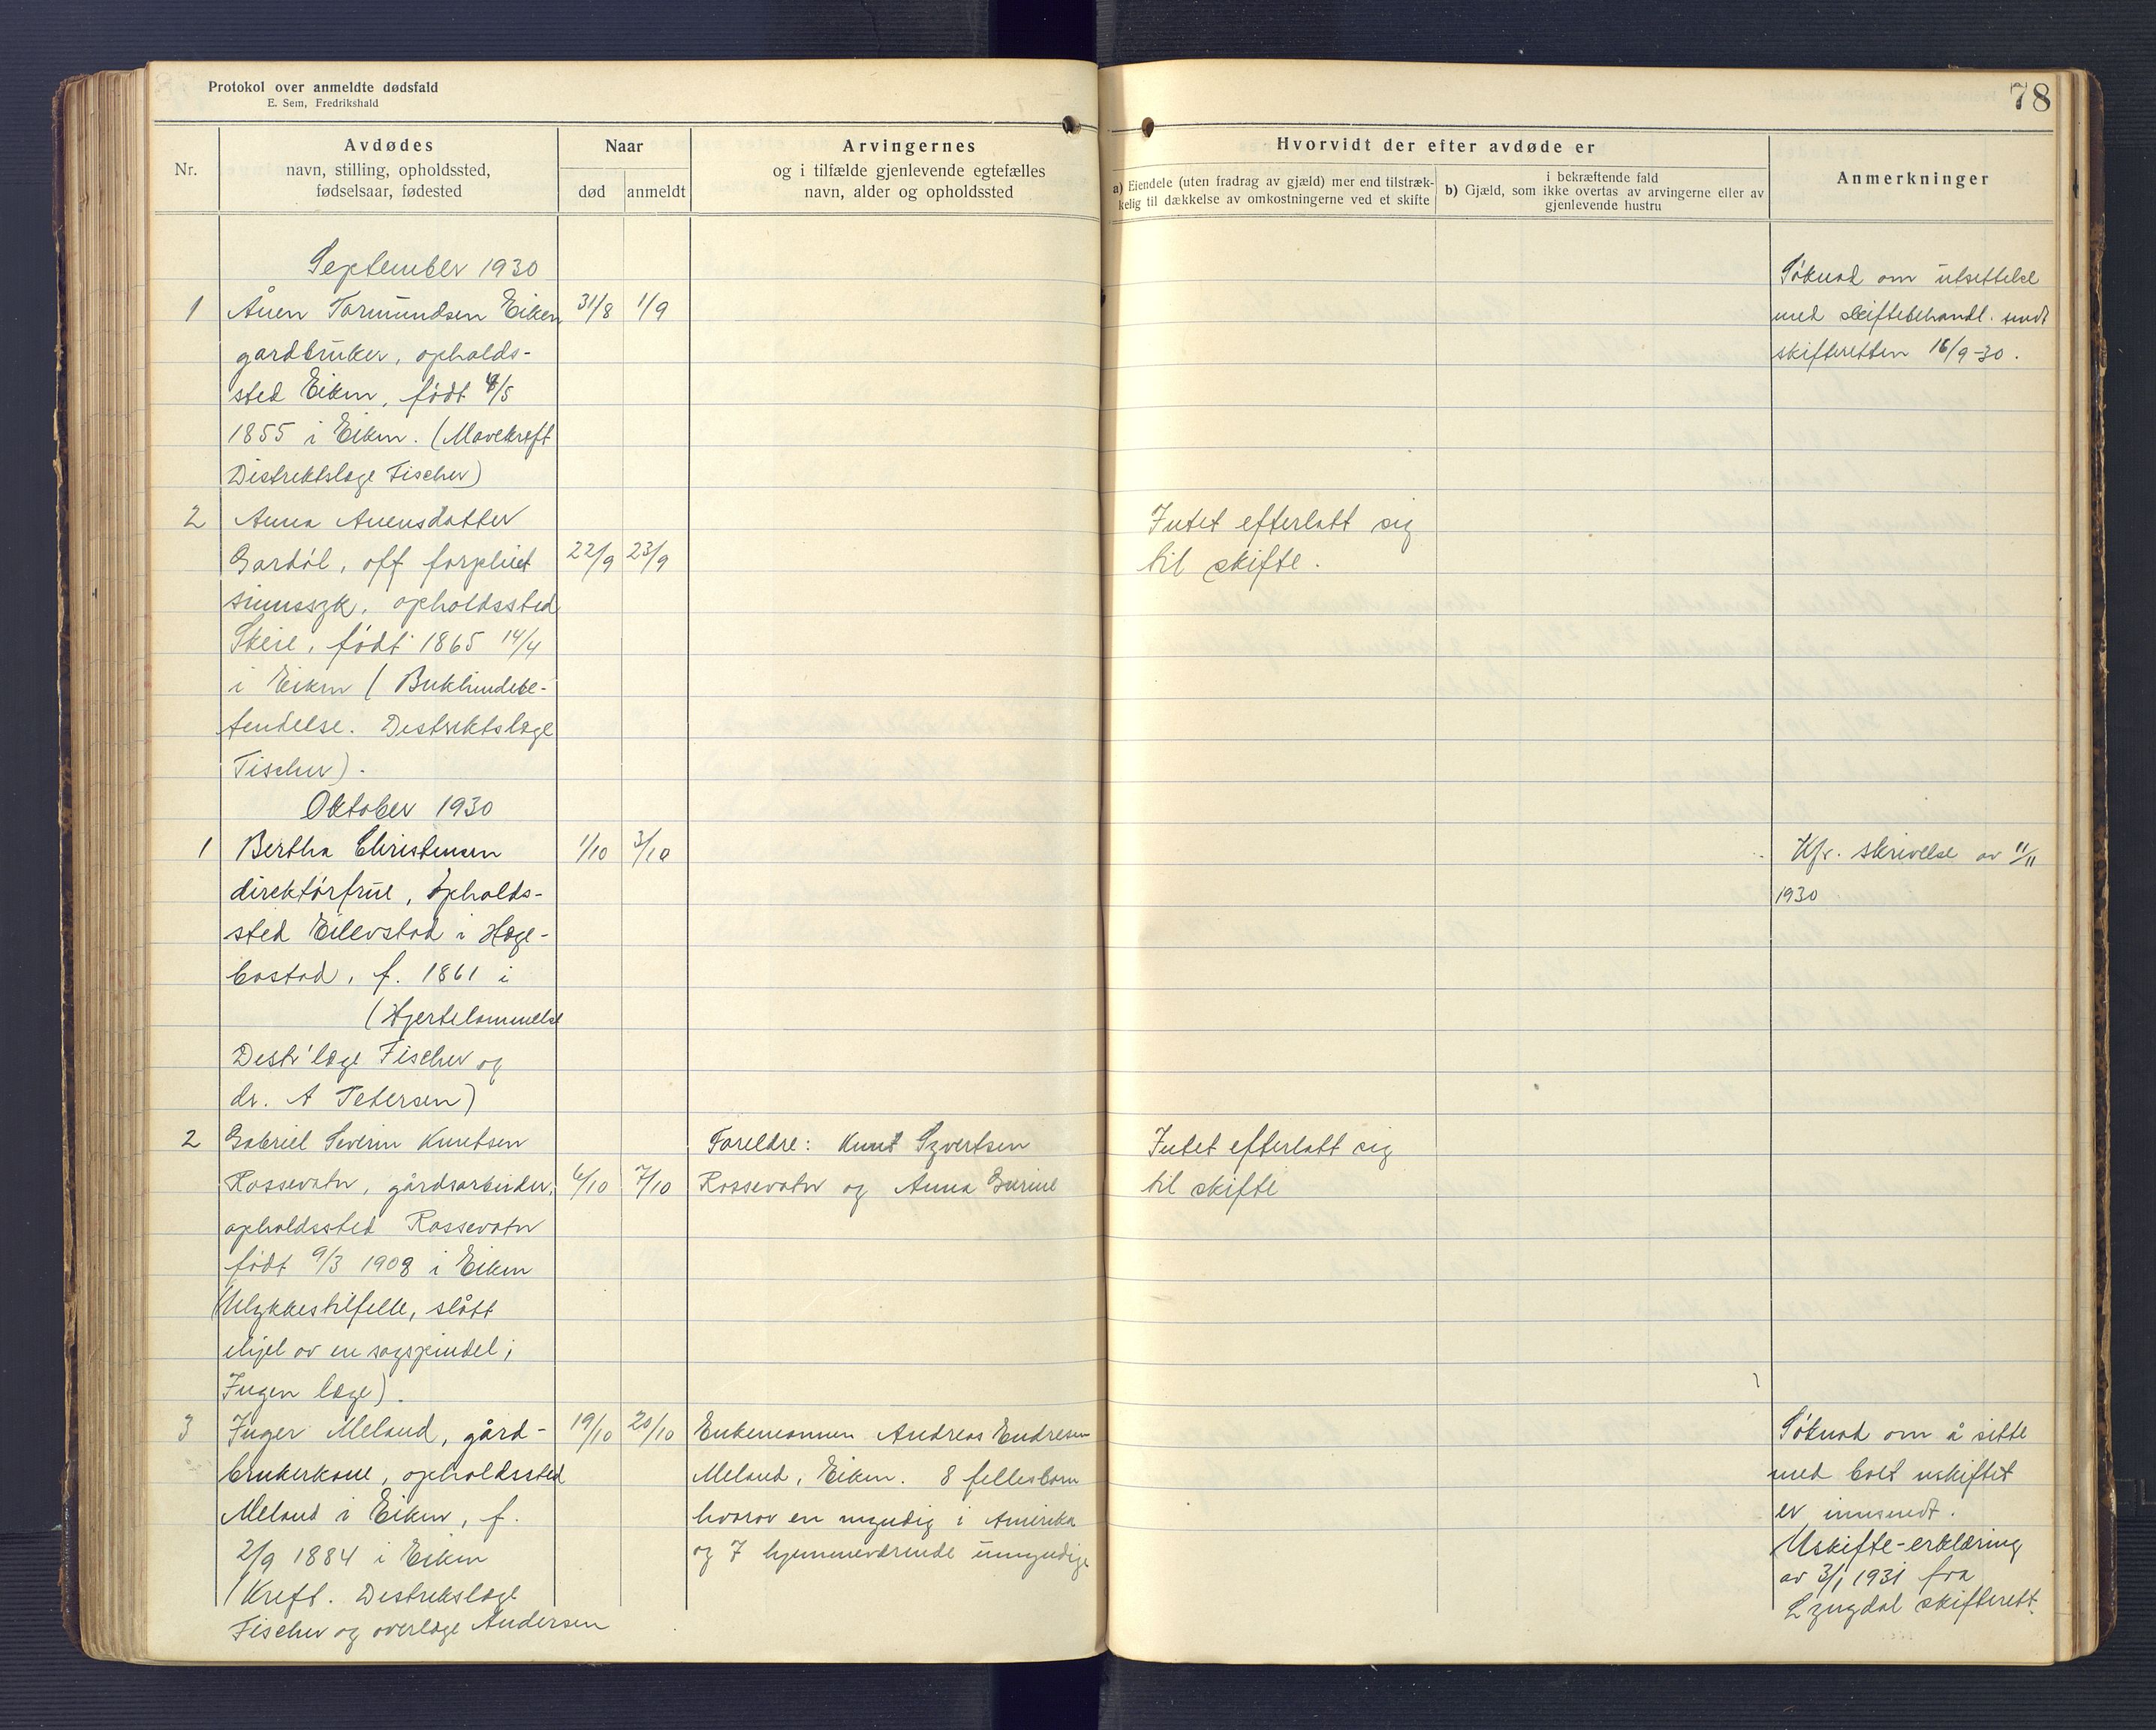 Protokol over anmeldte dødsfald
E. Sem, Fredrikshald
78
Nr.
Avdødes
navn, stilling, opholdssted,
fødselsaar, fødested
Naar
død
anmeldt
Arvingernes
og i tilfælde gjenlevende egtefælles
navn, alder og opholdssted
Hvorvidt der efter avdøde er
a) Eiendele (uten fradrag av gjæld) mer end tilstræk-
kelig til dækkelse av omkostningerne ved et skifte
i bekræftende fald
b) Gjæld, som ikke overtas av arvingerne eller av
gjenlevende hustru
Anmerkninger
September 1930
1 Åuen Tormundsen Eiken 31/8 1/9
gardbruker, opholds-
sted Eiken, født /5
1855 i Eiken. (Mavekreft
Distriktslæge Fischer)
Søknad om utsettelse
med skiftebehandl. sendt
skifteretten 16/9-30.
2 Anna Auensdatter
Gardøl, off forpleiet 22/9 23/9
sinnssyk, opholdssted
Skeie, født 1865 14/4
i Eiken (Bukhindebe-
tendelse. Distriktslæge
Fischer).
Intet efterlatt sig
til skifte.
Oktober 1930
1 Bertha Christensen 1/10 3/10
direktørfrue, opholds-
sted Eilevstad i Hæge-
bostad, f. 1861 i
(Hjertelammelse
Distr'læge Fischer og
dr. A Petersen)
Kfr. skrivelse av 11/11
1930
2 Gabriel Severin Knutsen
Rossevatn, gårdsarbeider, 6/10 7/10
opholdssted Rossevatn
født 9/3 1908 i Eiken
(Ulykkestilfelle, slått
ihjel av en sagspindel;
Ingen læge).
Foreldre: Knut Syvertsen
Rossevatn og Anna Gurine
Intet efterlatt sig
til skifte
3 Inger Meland, gård- 19/10 20/10
brukerkone, opholdssted
Meland i Eiken, f.
2/9 1884 i Eiken
(Kreft. Distrikslæge
Fischer og overlæge Andersen
Enkemannen Andreas Endresen
Meland, Eiken. 8 fellesbarn
hvorav en myndig i Amerika
og 7 hjemmeværende umyndige
Søknad om å sitte
med boet uskiftet
er innsendt.
Uskifte-erklæring
av 3/1 1931 fra
Lyngdal skifterett.